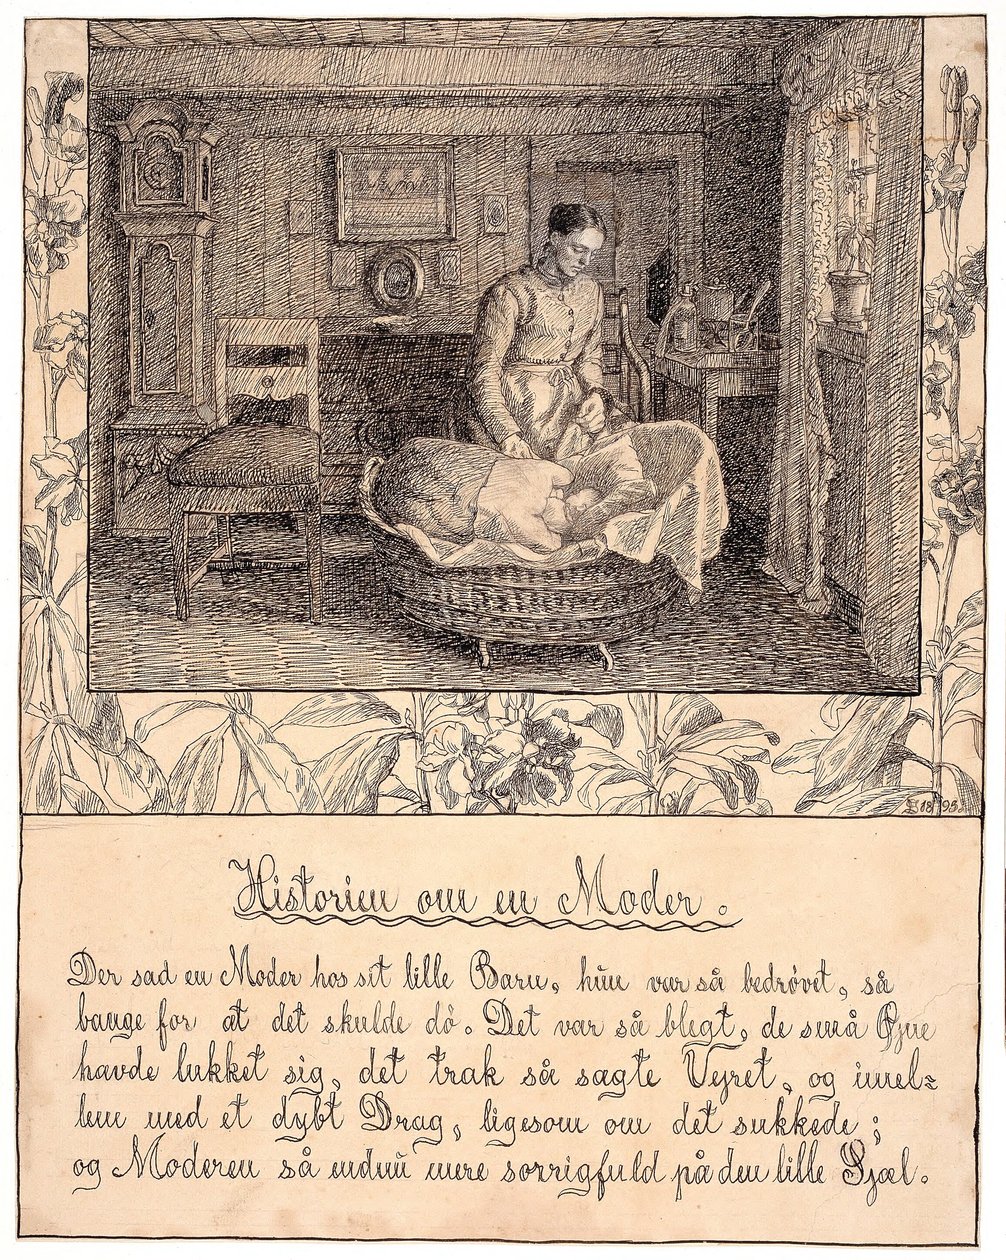 1895.
Historien om en Moder.
Der sad en Moder hos sit lille Barn, hun var så bedrøvet, så
bange for at det skulde dö. Det var så blegt, de små Øjne
havde lukket sig, det trak så sagte Vejret, og imel=
lem med et dybt Drag, ligesom om det sukkede;
og Moderen så endnu mere sorrigfuld på den lille Sjæl.